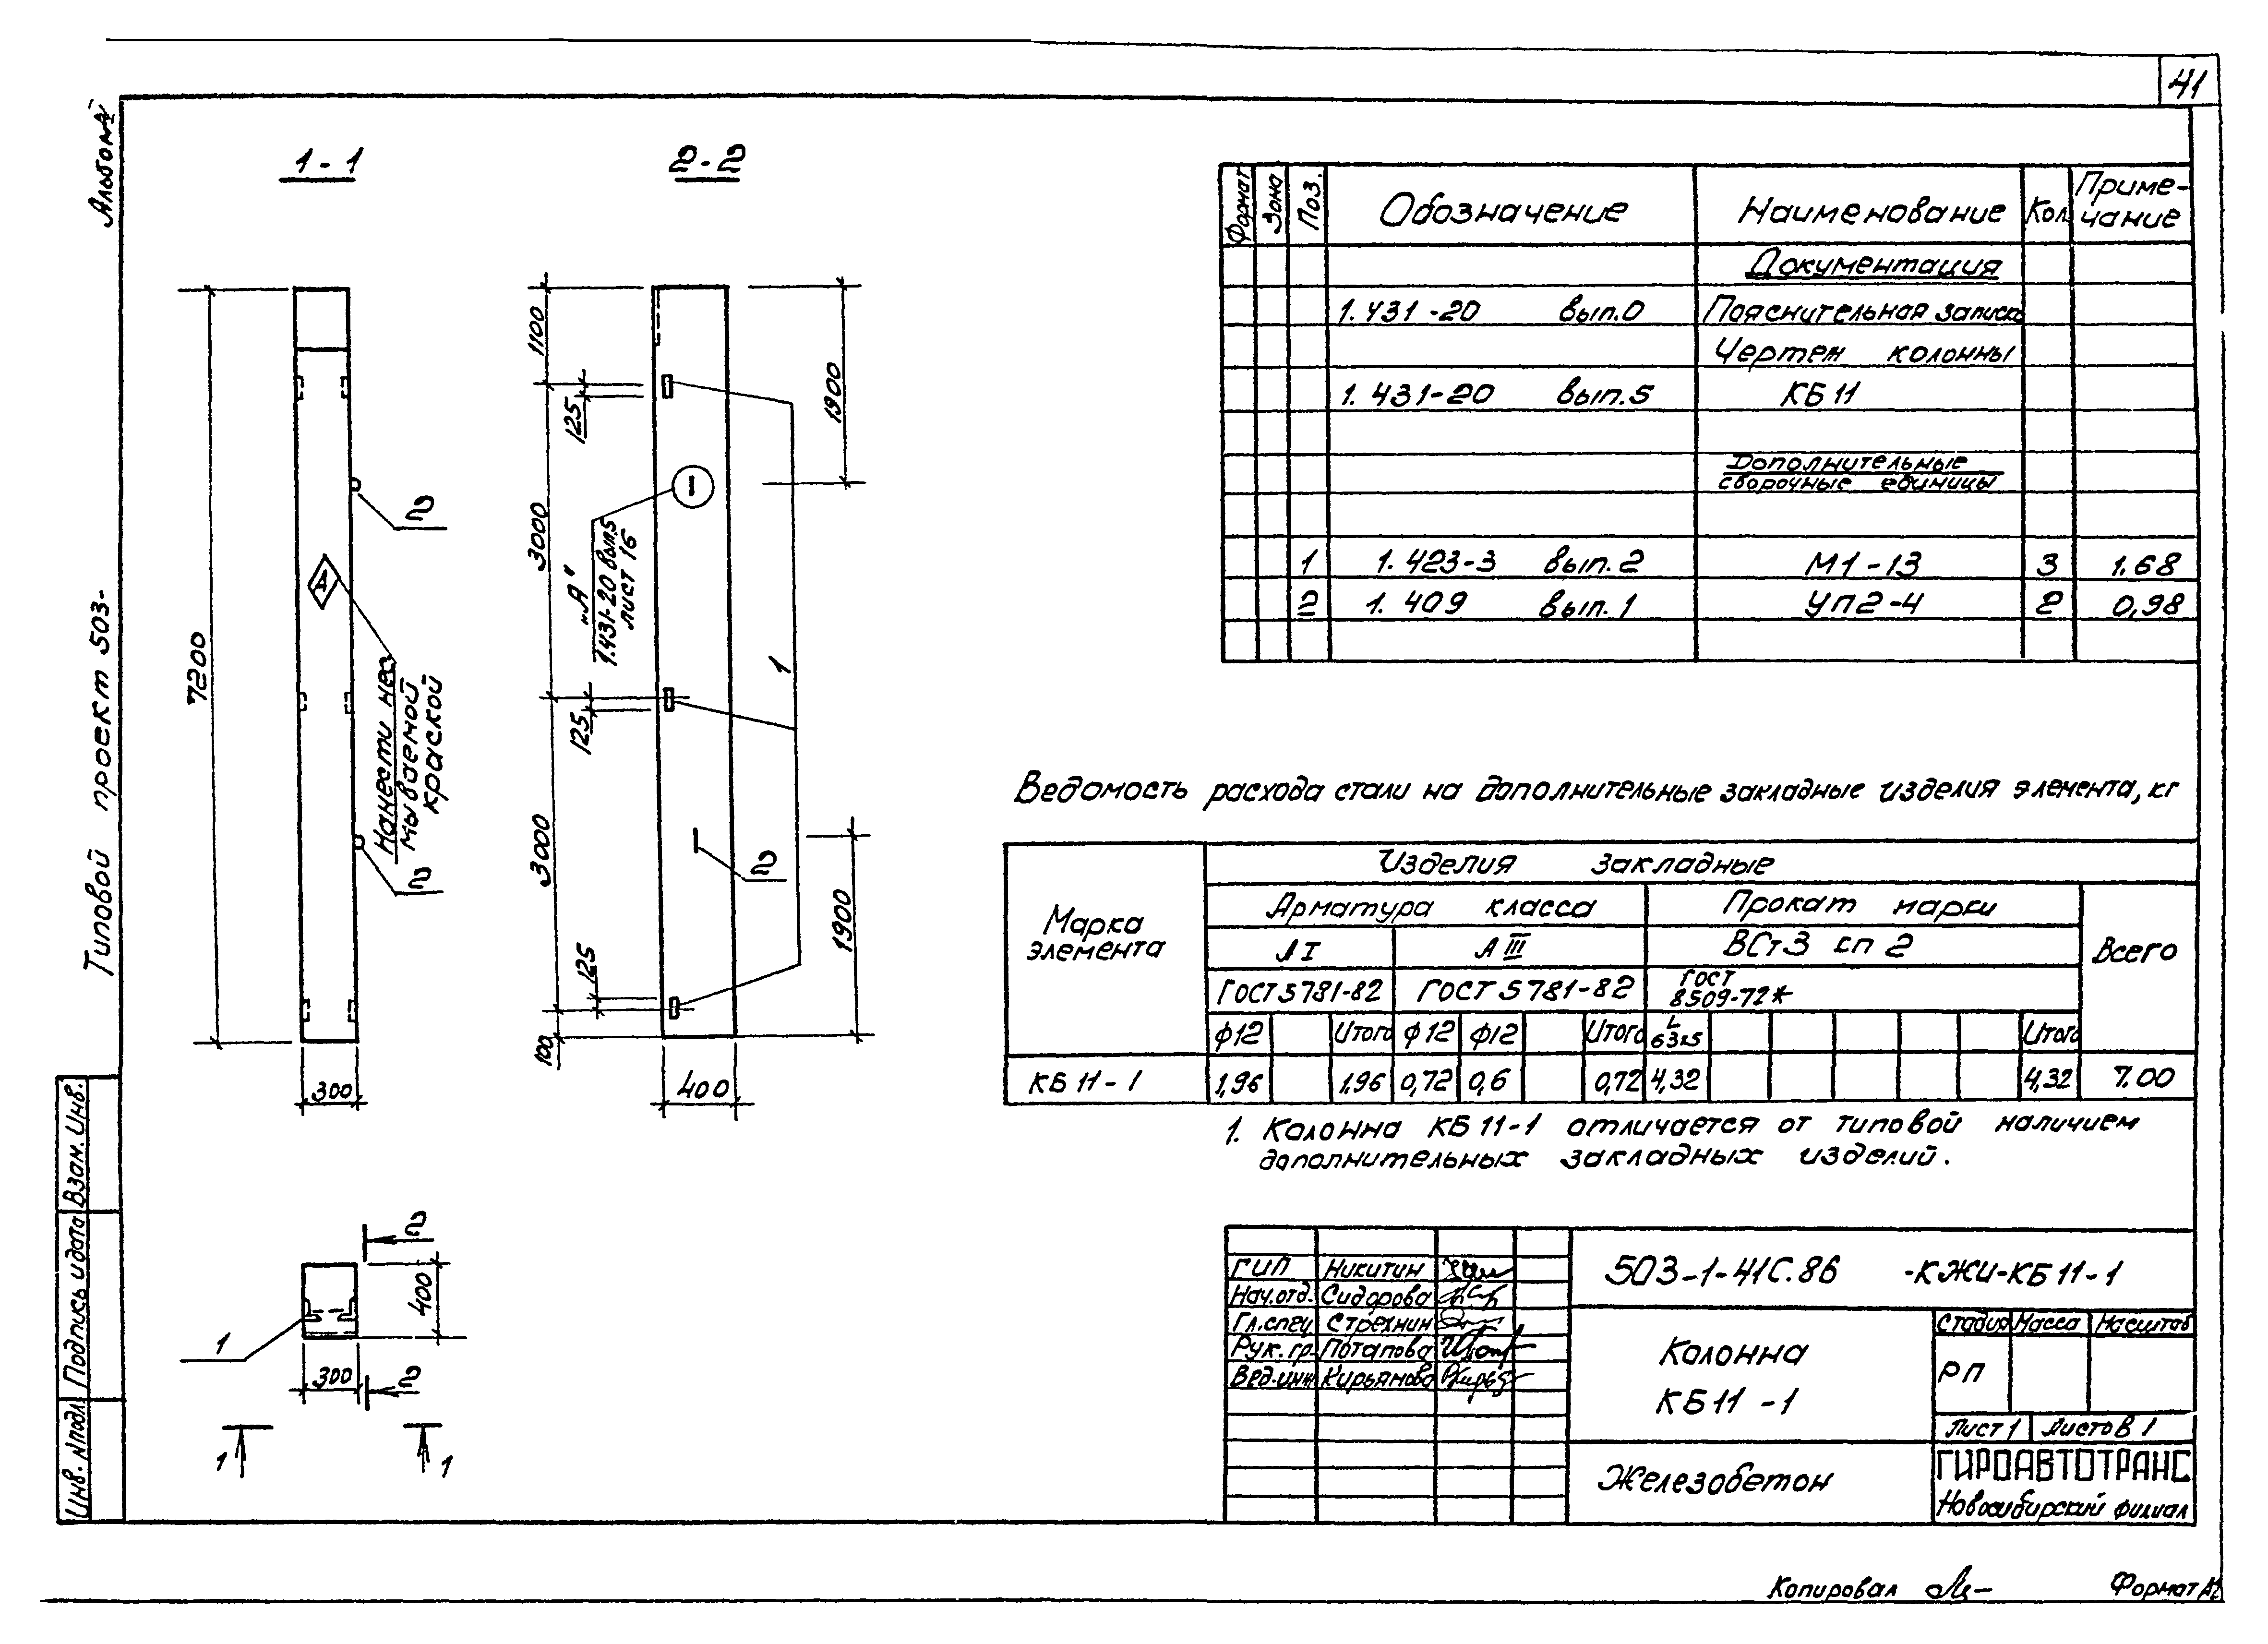 41
Альбом
Типовой проект 503-
1-1
2-2
7200
300
2
2
А
Нанести нес
мываемой
краской
1100
125
3000
125
3000
125
100
400
1900
1900
I
„А"
1.431-20 вып.5
лист 16
1
2
2
400
2
300
1
1
1
Формат Зона Поз. Обозначение Наименование Кол. Приме-
чание
Документация
1.431-20 вып.0 Пояснительная записка
Чертеж колонны
1.431-20 вып.5 КБ 11
Дополнительные
сборочные единицы
1 1.423-3 вып.2 М1-13 3 1.68
2 1.409 вып.1 УП2-4 2 0,98
Ведомость расхода стали на дополнительные закладные изделия элемента, кг
Марка
элемента
Изделия закладные
Арматура класса Прокат марки Всего
А I А III ВСт3 сп 2
ГОСТ 5781-82 ГОСТ 5781-82 ГОСТ
8509-72*
ф12 Итого ф12 ф12 Итого L
63х5 Итого
КБ 11-1 1,96 1,96 0,72 0,6 0,72 4,32 4,32 7.00
1. Колонна КБ 11-1 отличается от типовой наличием
дополнительных закладных изделий.
ГИП Никитин
Нач.отд. Сидорова
Гл.спец Стрехнин
Рук.гр. Потапова
Вед.инж Кирьянова
503-1-41С.86 -КЖИ-КБ 11-1
Колонна
КБ 11 -1
Стадия Масса Масштаб
РП
Лист 1 Листов 1
Железобетон
ГИРОАВТОТРАНС
Новосибирский филиал
Инв. N подл. Подпись и дата Взам. Инв.
Копировал
Формат А2